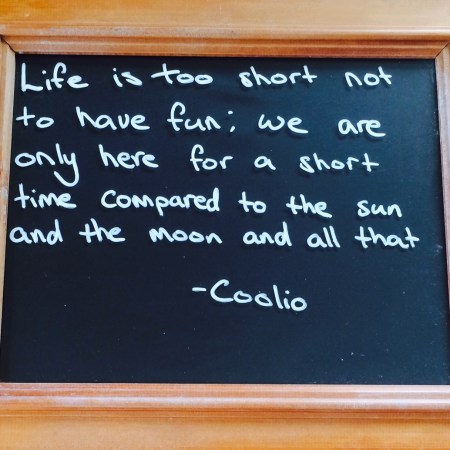 Life is too short not
to have fun; we are
only here for a short
time compared to the sun
and the moon and all that
-Coolio